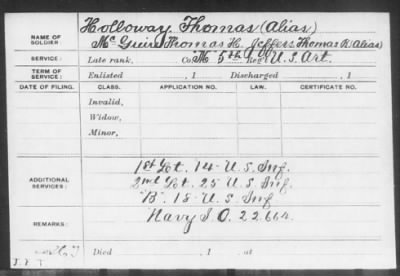 Holloway, Thomas (Alias)
NAME OF SOLDIER: McGuire, Thomas H. Jeffers, Thomas R. (Alias)
SERVICE: Late rank, Co. "M" 5th Reg't U.S. Art.
TERM OF SERVICE: Enlisted , 1 Discharged , 1
DATE OF FILING. CLASS. APPLICATION NO. CERTIFICATE NO.
Invalid,
Widow,
Minor,
ADDITIONAL SERVICES:
1st Lot. 14- U.S. Inf.
2nd Lot. 25 U.S. Inf.
"B". 18- U.S. Inf
REMARKS: Navy S.O. 22664.
Died , 1 at